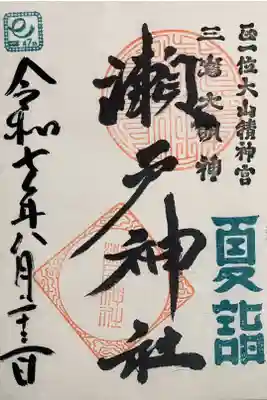 正一位大山積神宮
三島大明神
夏詣
瀬戸神社
令和七年八月二十三日